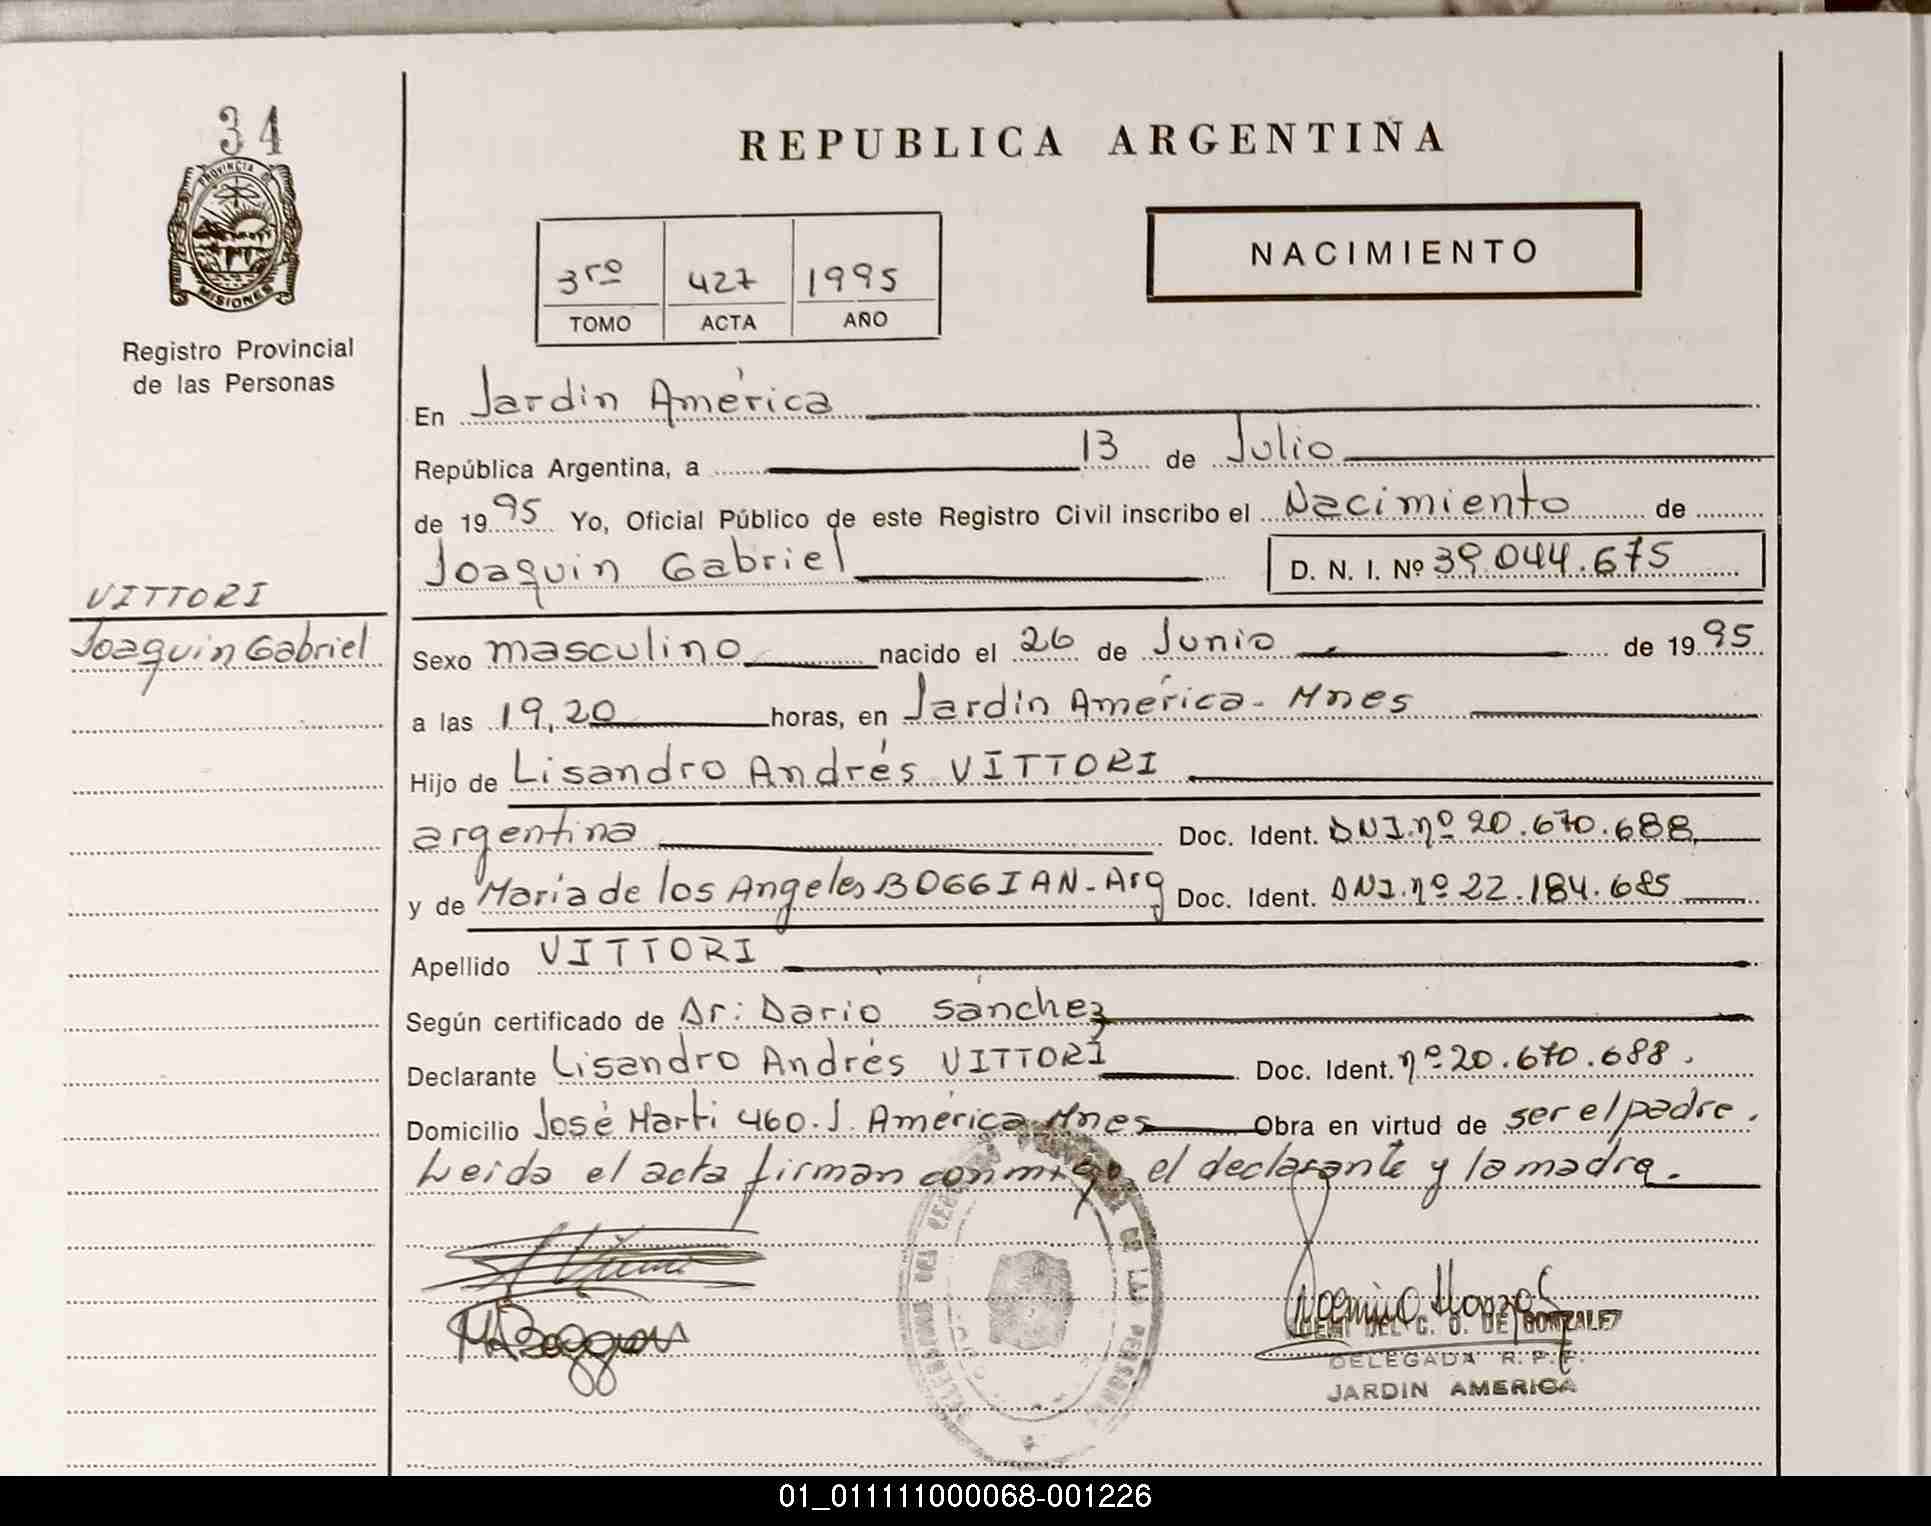 34
PROVINCIA DE
MISIONES
Registro Provincial
de las Personas
REPUBLICA ARGENTINA
NACIMIENTO
3ro 427 1995
TOMO ACTA AÑO
En Jardín América
República Argentina, a 13 de Julio
de 1995 Yo, Oficial Público de este Registro Civil inscribo el Nacimiento de
Joaquin Gabriel D. N. I. Nº 39.044.675
VITTORI
Joaquin Gabriel
Sexo masculino nacido el 26 de Junio de 1995
a las 19,20 horas, en Jardín América - Mnes
Hijo de Lisandro Andrés VITTORI
argentina Doc. Ident. DNI.nº 20.670.688
y de María de los Angeles BOGGIAN - Arg Doc. Ident. DNI.nº 22.184.685
Apellido VITTORI
Según certificado de Dr: Dario Sánchez
Declarante Lisandro Andrés VITTORI Doc. Ident. nº 20.670.688.
Domicilio José Marti 460. J. América Mnes Obra en virtud de ser el padre.
Leida el acta firman conmigo el declarante y la madre.
DEL C. O. DE GONZALEZ
DELEGADA R. P. P.
JARDIN AMERICA
01_011111000068-001226